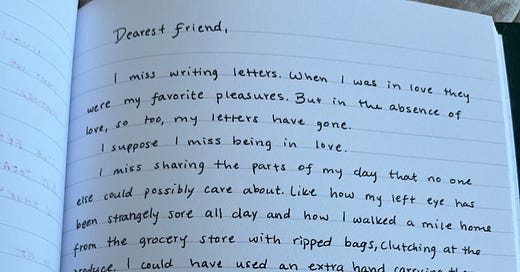 Dearest friend,
I miss writing letters. When I was in love they
were my favorite pleasures. But in the absence of
love, so too, my letters have gone.
I suppose I miss being in love.
I miss sharing the parts of my day that no one
else could possibly care about. Like how my left eye has
been strangely sore all day and how I walked a mile home
from the grocery store with ripped bags, clutching at the
produce. I could have used an extra hand carrying